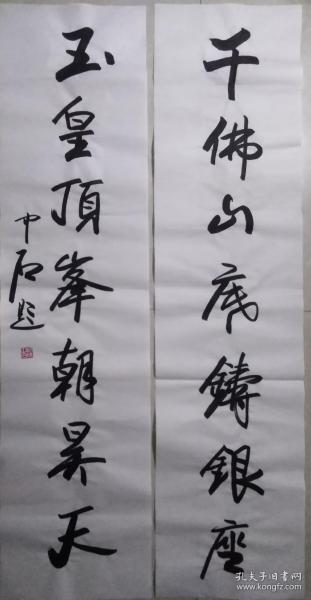 千佛山底鑄銀座
玉皇頂峯朝昊天
中石题
孔夫子旧书网